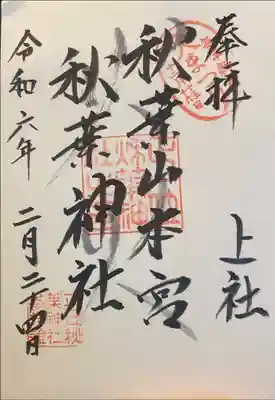 奉拝
上社
秋葉山本宮
秋葉神社
令和六年
二月二十四日